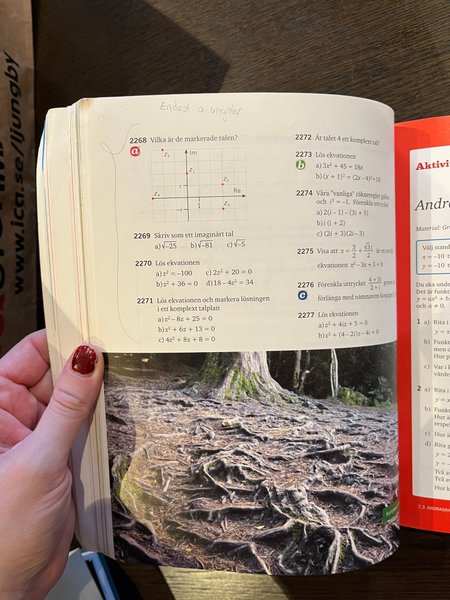 www.ica.se/ljungby
Endast a uppgifter
2268 Vilka är de markerade talen?
a
Im
z₅
z₁
i
z₂
Re
z₄
1
-i
z₃
2269 Skriv som ett imaginärt tal
a) √-25 b) √-81 c) √-5
2270 Lös ekvationen
a) z² = -100 c) 2z² + 20 = 0
b) z² + 36 = 0 d) 18 - 4z² = 34
2271 Lös ekvationen och markera lösningen
i ett komplext talplan
a) z² - 8z + 25 = 0
b) z² + 6z + 13 = 0
c) 4z² + 8z + 8 = 0
2272 Är talet 4 ett komplext tal?
2273 Lös ekvationen
b
a) 3x² + 45 = 18x
b) (x + 1)² = (2x - 4)² + 18
2274 Våra "vanliga" räkneregler gäller
och i² = -1. Förenkla uttrycket
a) 2(i - 1) - (3i + 5)
b) i(i + 2)
c) (2i + 3)(2i - 3)
2275 Visa att x = 3/2 + √3i/2 är en rot till
ekvationen x² - 3x + 3 = 0
2276 Förenkla uttrycket (4 + 3i)/(2 - i) genom att
c
förlänga med nämnarens
2277 Lös ekvationen
a) z² + 4iz + 5 = 0
b) z² + (4 - 2i)z - 4i = 0
Aktivi
Andra
Material: Gra
Välj stand
y = -10 t
Du ska unde
Det är funkt
y = ax² + b
och a ≠ 0.
1 a) Rita i
b) Funk
men
c) Var i
värde
2 a) Rita
b) Funk
Hur ä
respe
c) Hur är
d) Rita
y = 2
y = -
Två av
Två av
Hur k
2.3 ANDRAGR